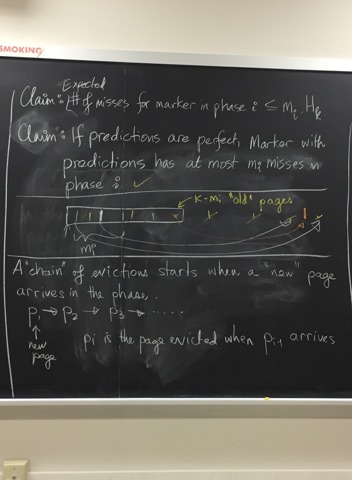 SMOKING
Expected
Claim: # of misses for marker in phase i ≤ mi. Hk
Claim: If predictions are perfect, Marker with
predictions has at most mi misses in
phase i. ✓
k-mi "old" pages
mi
A "chain" of evictions starts when a "new" page
arrives in the phase.
P1 → P2 → P3 → .....
new
page
Pi is the page evicted when Pi-1 arrives